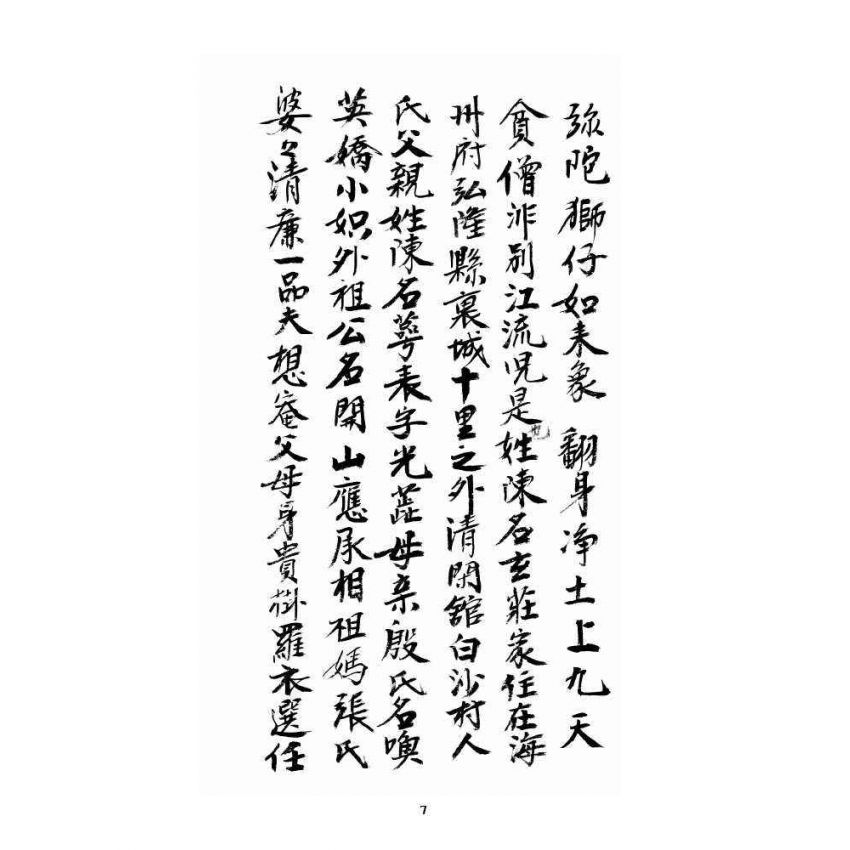 弥陀獅仔如来象 翻身净土上九天
貧僧泋别江流児是姓陳名玄莊家住在海
州府弘隆縣裏城十里之外清閑舘白沙村人
氏父親姓陳名萼表字光蕋母亲殷氏名喚
英嬌小姐外祖公名開山應承相祖媽張氏
婆々清廉一品夫想庵父母身貴掛羅衣選任
7